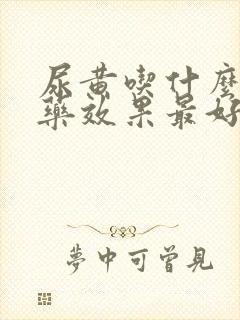 尿黃喫什麼
藥效果最好
夢中可曾見